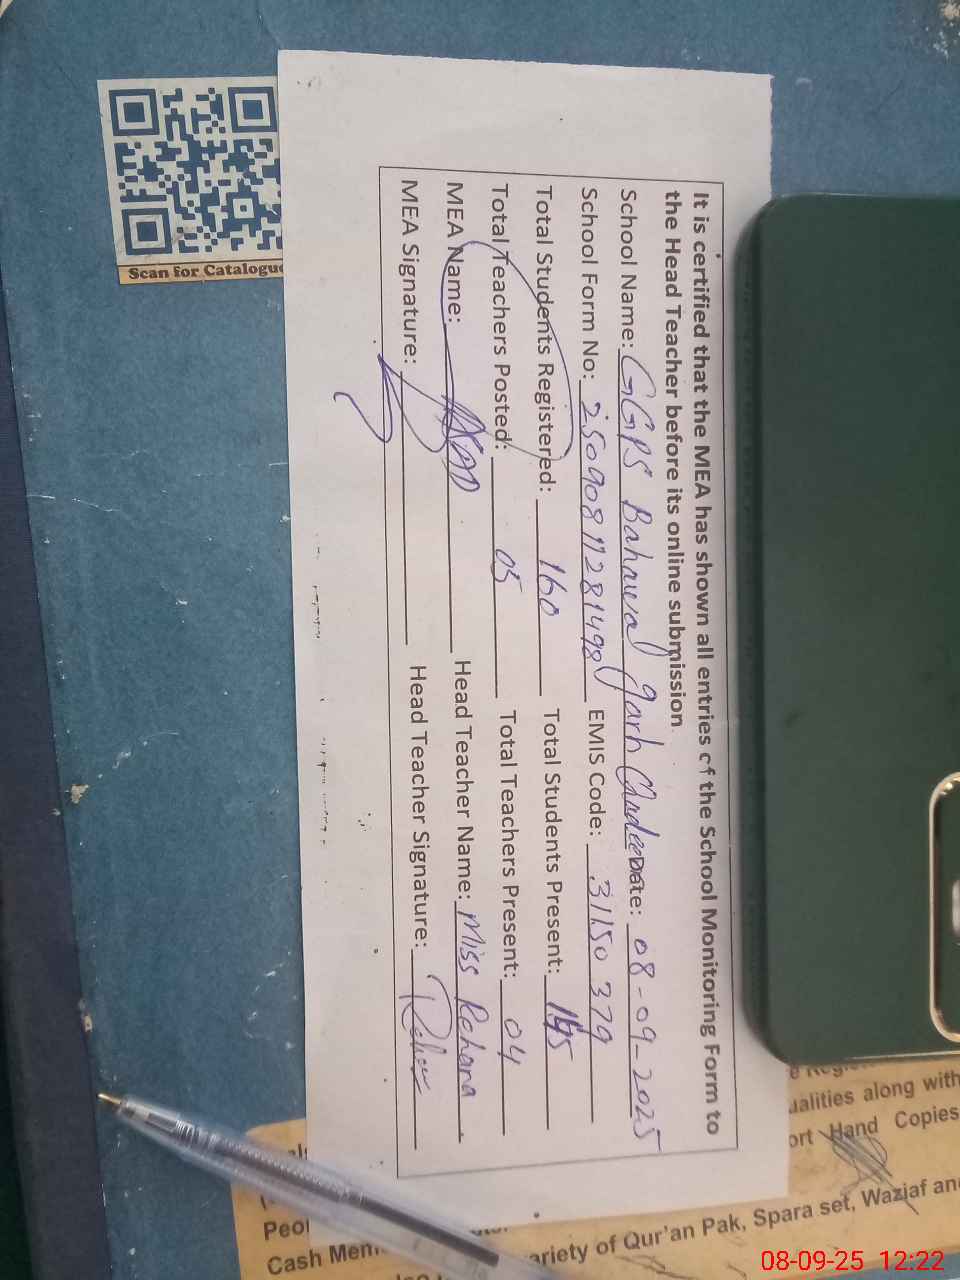 It is certified that the MEA has shown all entries of the School Monitoring Form to
the Head Teacher before its online submission.
School Name: GGPS Bahawal garh Date: 08-09-2025
School Form No: EMIS Code: 31150379
Total Students Registered: 160 Total Students Present: 145
Total Teachers Posted: 05 Total Teachers Present: 04
MEA Name: Head Teacher Name: Miss Rehana
MEA Signature: Head Teacher Signature:
Scan for Catalogue
alities along with
ort Hand Copies
ariety of Qur'an Pak, Spara set, Waziaf an
Cash Mem
08-09-25 12:22